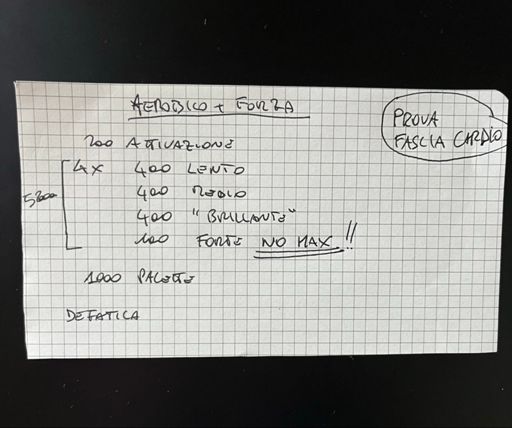 AEROBICO + FORZA
PROVA
FASCIA CARDIO
200 ATTIVAZIONE
4x 400 LENTO
400 MEDIO
400 "BRILLANTE"
100 FORTE NO MAX !!
5200
1000 PALETTE
DEFATICA